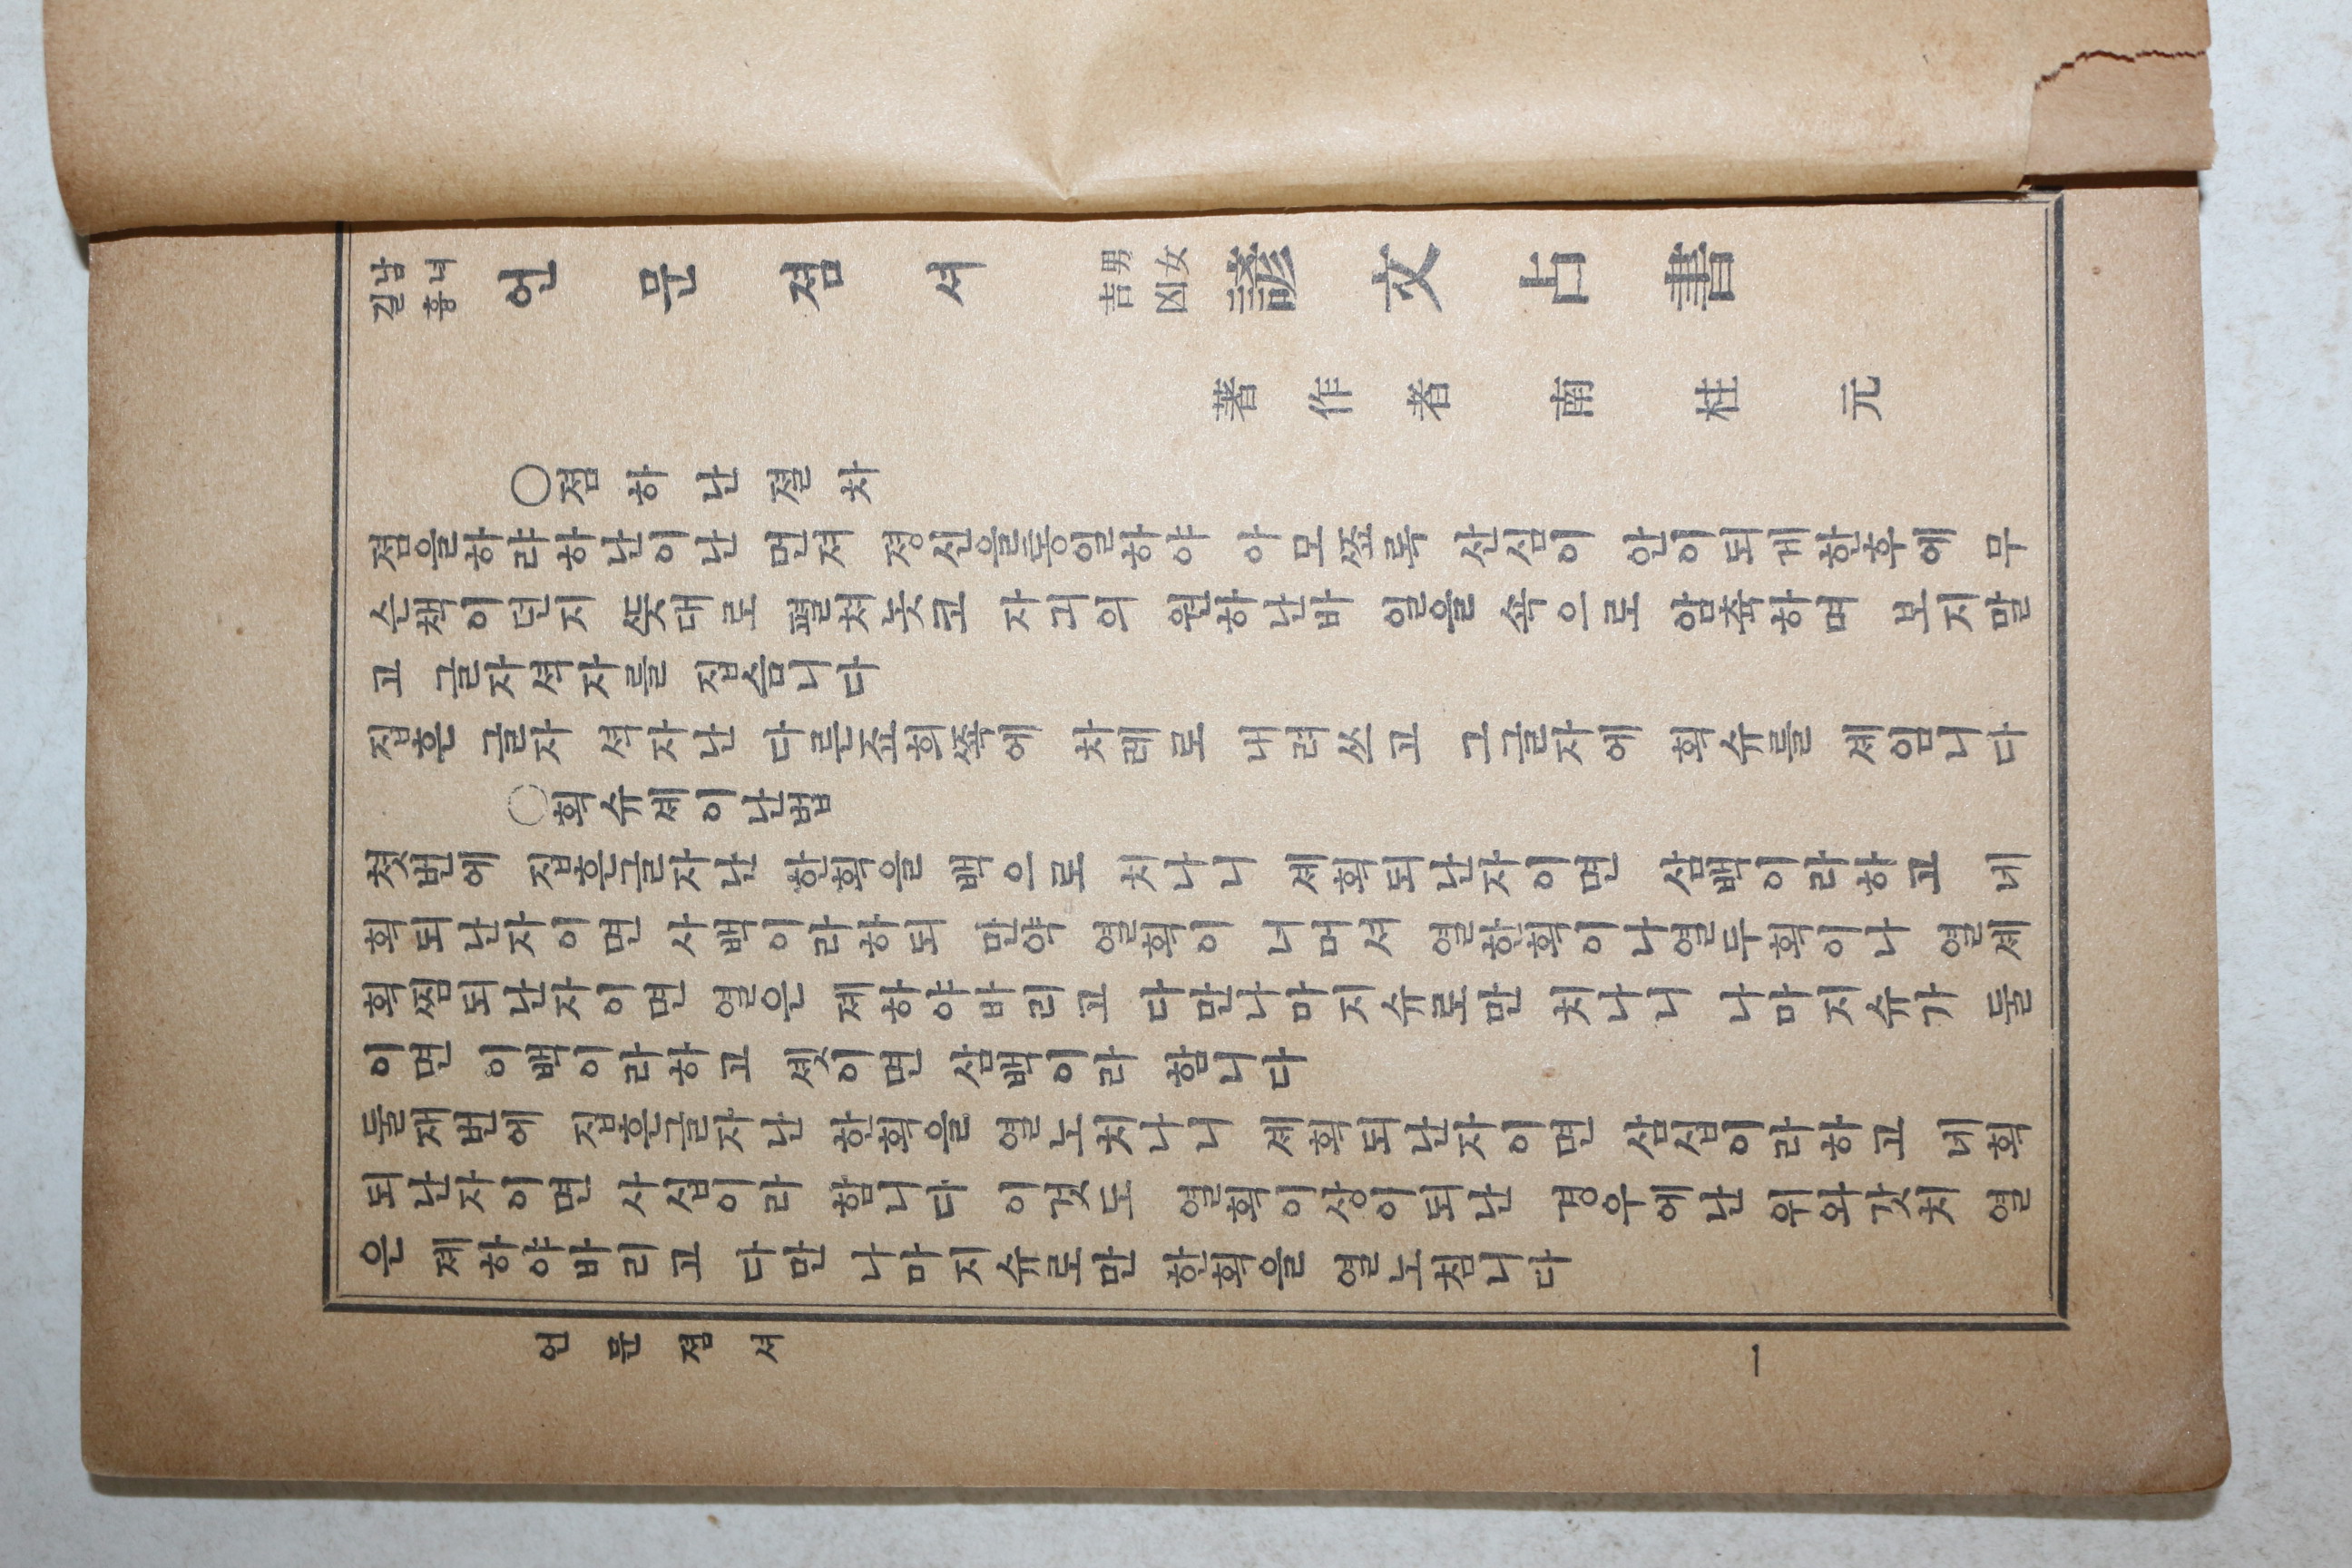 남녀길흉 언문졈셔 男女吉凶 諺文占書
著作者 南柱元
○졈하난졀차
졈을하랴하난이난 먼져 졍신을통일하야 아모쪼록 산심이 안이되게한후에 무
슨책이던지 뜻대로 펼쳐놋코 자긔의 원하난바 일을 속으로 암츅하며 보지말
고 글자셕자를 집슴니다
집흔 글자 셕자난 다른죠희쪽에 차레로 내려쓰고 그글자에 획슈를 셰임니다
○획슈셰이난법
쳣번에 집흔글자난 한획을 백으로 치나니 셰획되난자이면 삼백이라하고 네
획되난자이면 사백이라하되 만약 열획이 너머셔 열한획이나열두획이나 열셰
획찜되난자이면 열은 졔하야바리고 다만나마지슈로만 치나니 나마지슈가 둘
이면 이백이라하고 솃이면 삼백이라 함니다
둘재번에 집흔글자난 한획을 열노치나니 셰획되난자이면 삼십이라하고 네획
되난자이면 사십이라 함니다 이것도 열획이상이되난 경우에난 위와갓치 열
은 졔하야바리고 다만 나마지슈로만 한획을 열노침니다
언문졈셔
一